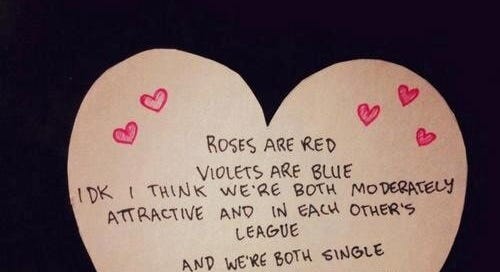 ROSES ARE RED
VIOLETS ARE BLUE
IDK I THINK WE'RE BOTH MODERATELY
ATTRACTIVE AND IN EACH OTHER'S
LEAGUE
AND WE'RE BOTH SINGLE